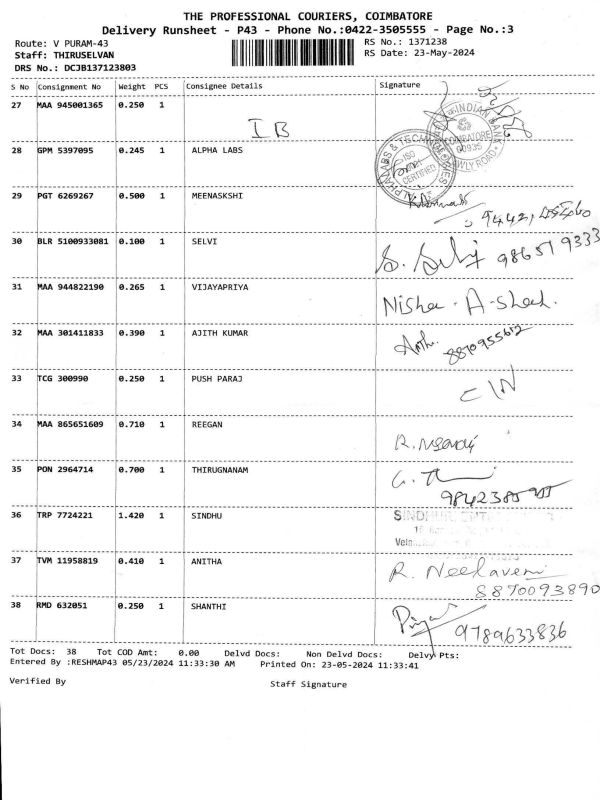 THE PROFESSIONAL COURIERS, COIMBATORE
Delivery Runsheet - P43 - Phone No.:0422-3505555 - Page No.:3
Route: V PURAM-43
Staff: THIRUSELVAN
DRS No.: DCJB137123803
RS No.: 1371238
RS Date: 23-May-2024
S No Consignment No Weight PCS Consignee Details Signature
27 MAA 945001365 0.250 1
IB
INDIAN BANK
COIMBATORE
28 GPM 5397095 0.245 1 ALPHA LABS
ALPHA LABS & TECHNOLOGIES
ISO
CERTIFIED
29 PGT 6269267 0.500 1 MEENASKSHI
30 BLR 5100933081 0.100 1 SELVI
S. Selvi 986519333
31 MAA 944822190 0.265 1 VIJAYAPRIYA
Nisha
32 MAA 301411833 0.390 1 AJITH KUMAR
8870955612
33 TCG 300990 0.250 1 PUSH PARAJ
34 MAA 865651609 0.710 1 REEGAN
35 PON 2964714 0.700 1 THIRUGNANAM
36 TRP 7724221 1.420 1 SINDHU
37 TVM 11958819 0.410 1 ANITHA
R. Neelaveni
8870093890
38 RMD 632051 0.250 1 SHANTHI
9789633836
Tot Docs: 38 Tot COD Amt: 0.00 Delvd Docs: Non Delvd Docs: Delvy Pts:
Entered By :RESHMAP43 05/23/2024 11:33:30 AM Printed On: 23-05-2024 11:33:41
Verified By Staff Signature